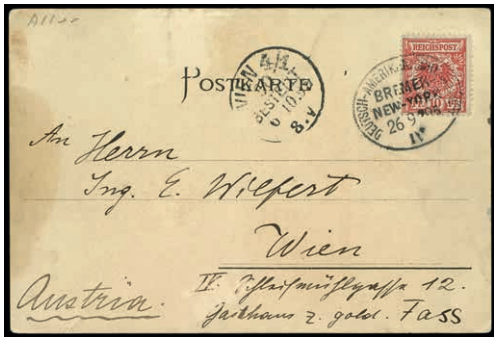 Aller
POSTKARTE
WIEN 4/1
BESTELLT
6 10 9
8.V
REICHSPOST
10 10
DEUTSCH-AMERIK.
BREMEN
NEW-YORK
26 9
IV*
An Herrn
Ing. E. Wilfert
Wien
IV. Schleifmühlgasse 12.
Gasthaus z. gold. Fass
Austria.